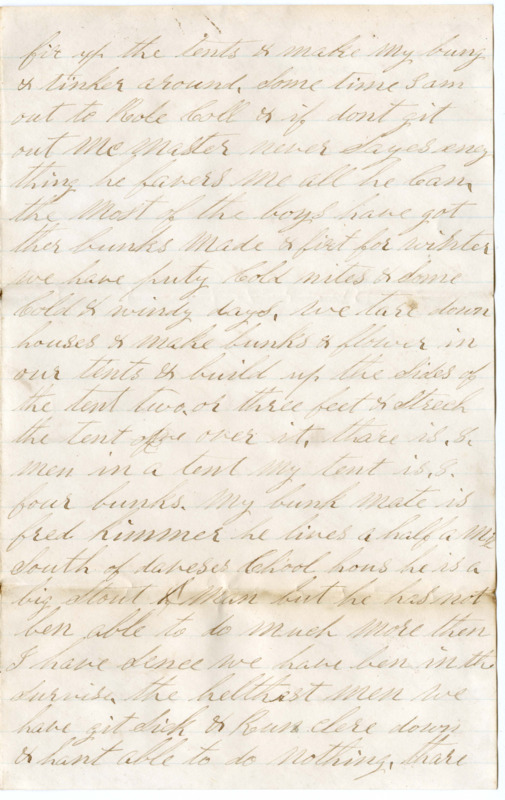 fix up the tents & make my bung
& tinker around. Some time I am
out to Role Coll & if dont git
out Mc Master never Sayes eny
thing he favers me all he Can,
the Most of the boys have got
ther bunks Made & fixt for winter
we have puty Cold nites & Some
Cold & windy days. we tare down
houses & make bunks & flower in
our tents & build up the Sides of
the tent two or three feet & Strech
the tent over it. thare is .8.
men in a tent my tent is .8.
four bunks. My bunk mate is
fred Kimmer he lives a half a Mi
South of daveses Chool hous he is a
big Stout Man but he has not
ben able to do much more then
I have Sence we have ben in the
Survise. the helthest men we
have git Sick & Run clere down
& hant able to do nothing. thare